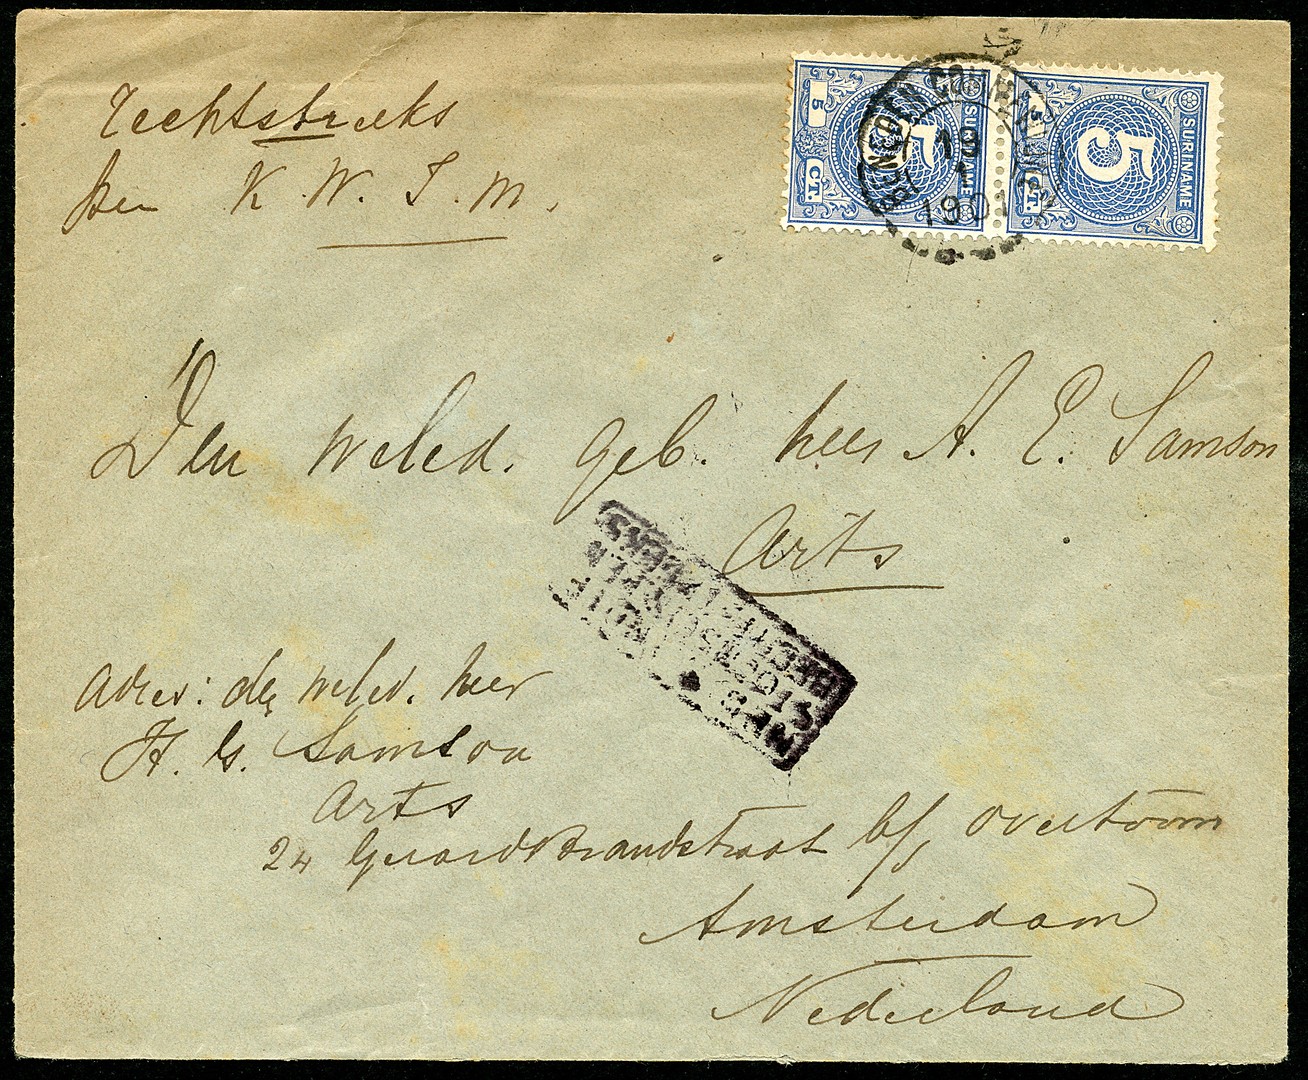 rechtstreeks
per K. W. I. M.
SURINAME
5
5
CT.
SURINAME
5
5
CT.
19
1
1901
Den weled. geb. heer A. E. Samson
Arts
RECHTSTREEKS
Adres: den weled. heer
H. G. Samson
Arts
24 Gerard Brandstraat b/s Overtoom
Amsterdam
Nederland